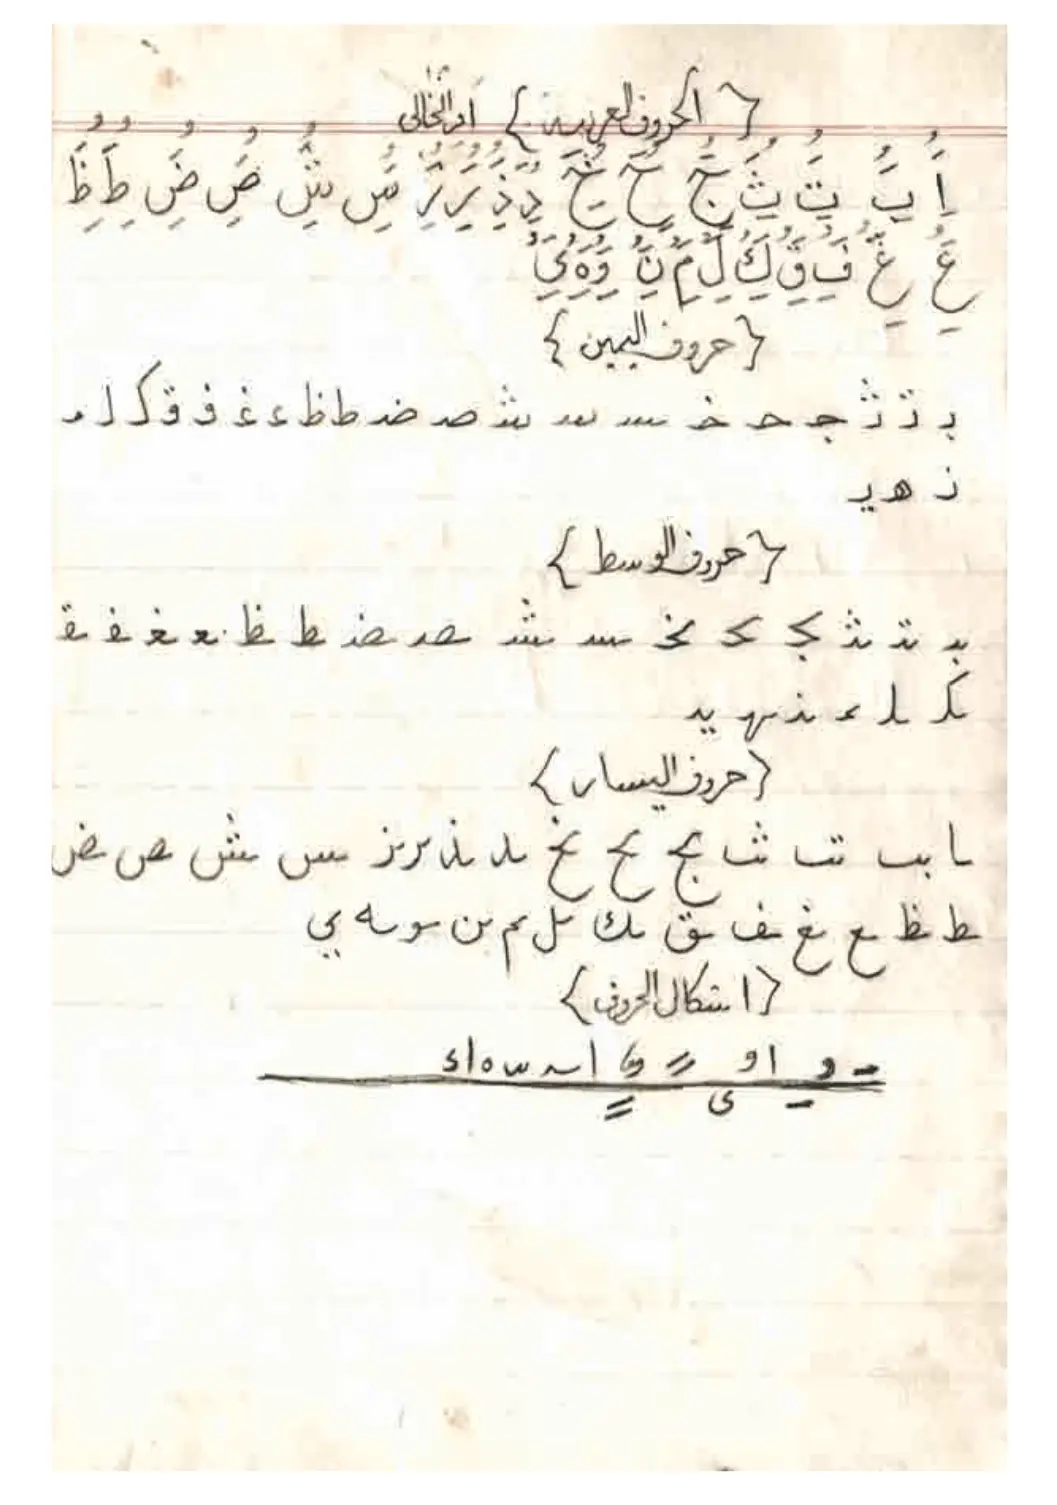 { الحروف العربية }
اَُِ بَُِ تَُِ ثَُِ جَُِ حَُِ خَُِ دَُِ ذَُِ رَُِ زَُِ سَُِ شَُِ صَُِ ضَُِ طَُِ ظَُِ
عَُِ غَُِ فَُِ قَُِ كَُِ لَُِ مَُِ نَُِ وَُِ هَُِ يَُِ
{ حروف اليمين }
بـ تـ ثـ جـ حـ خـ سـ شـ صـ ضـ طـ ظـ عـ غـ فـ قـ كـ لـ مـ
نـ هـ يـ
{ حروف الوسط }
ـبـ ـتـ ـثـ ـجـ ـحـ ـخـ ـسـ ـشـ ـصـ ـضـ ـطـ ـظـ ـعـ ـغـ ـفـ ـقـ
ـكـ ـلـ ـمـ ـنـ ـهـ ـيـ
{ حروف اليسار }
ـا ـب ـت ـث ـج ـح ـخ ـد ـذ ـر ـز ـس ـش ـص ـض
ـط ـظ ـع ـغ ـف ـق ـك ـل ـم ـن ـو ـه ـي
{ اشكال الحروف }